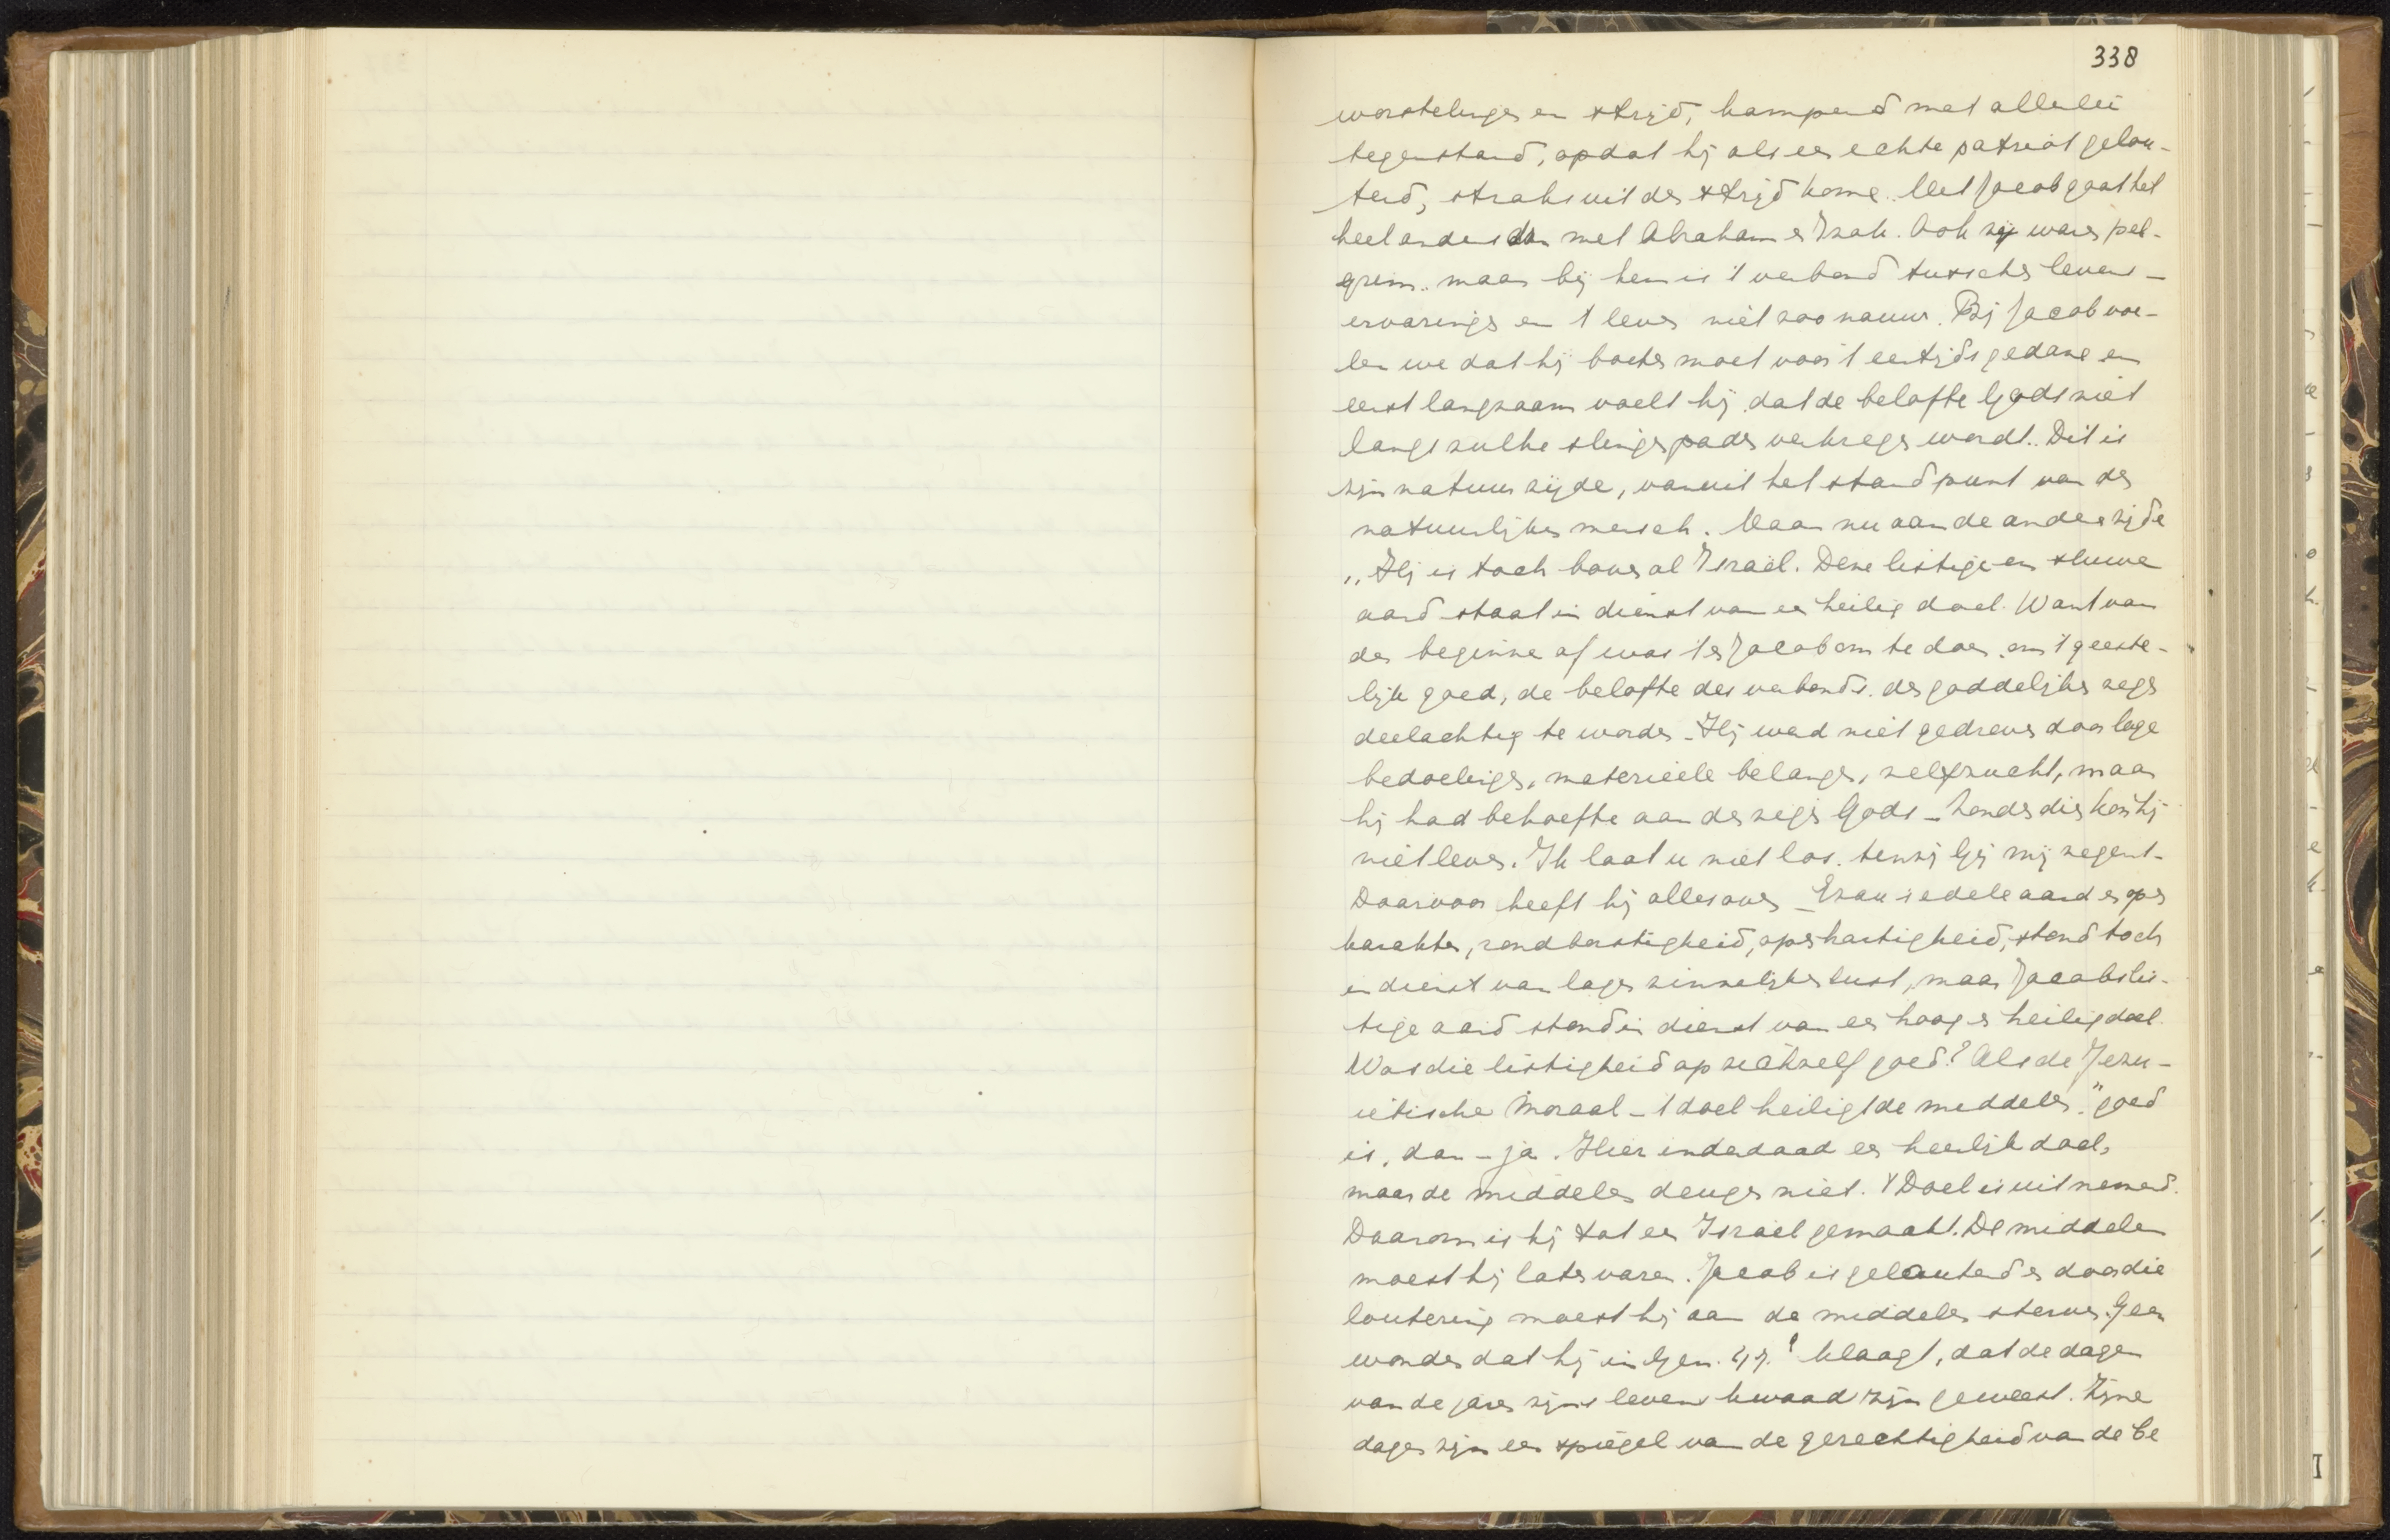 338
worstelingen en strijd, kampend met allerlei
tegenstand, opdat hij als een echte patriot gelou-
terd, straks uit den strijd kome. Met Jacob gaat het
heel anders dan met Abraham en Izak. Ook zij waren pel-
grim. maar bij hen is 't verband tusschen levens-
ervaringen en 't leven niet zoo nauw. Bij Jacob voe-
len we dat hij boeten moet voor 't eertijds gedane en
eerst langzaam voelt hij dat de belofte Gods niet
langs zulke slingerpaden verkregen wordt. Dit is
zijn natuurzijde, vanuit het standpunt van den
natuurlijken mensch. Maar nu aan de andere zijde
„Hij is toch bovenal Israël. Deze listige en sluwe
aard staat in dienst van een heilig doel. Want van
den beginne af was 't en Jacob om te doen om 't geeste-
lijk goed, de belofte des verbonds. den goddelijken zegen
deelachtig te worden - Hij werd niet gedreven door lage
bedoelingen, materieele belangen, zelfzucht, maar
hij had behoefte aan den zegen Gods - zonder dien kon hij
niet leven. Ik laat u niet los. tenzij Gij mij zegent -
Daarvoor heeft hij alles over - Ezau's edele aard en open
karakter, rondborstigheid, openhartigheid, stond toch
in dienst van lagen zinnelijken lust, maar Jacobs lis-
tige aard stond in dienst van een hoog en heilig doel.
Was die listigheid op zichzelf goed? Als de Jezu-
ietische moraal - 't doel heiligt de middelen" goed
is, dan - ja. Hier inderdaad een heerlijk doel,
maar de middelen deugen niet. 't Doel is uitnemend.
Daarom is hij tot een Israël gemaakt. De middelen
moest hij laten varen. Jacob is gelouterd en door die
loutering moest hij aan de middelen sterven. Geen
wonder dat hij in Gen. 47.9 klaagt, dat de dagen
van de jaren zijns levens kwaad zijn geweest. Zijne
dagen zijn een spiegel van de gerechtigheid van de be